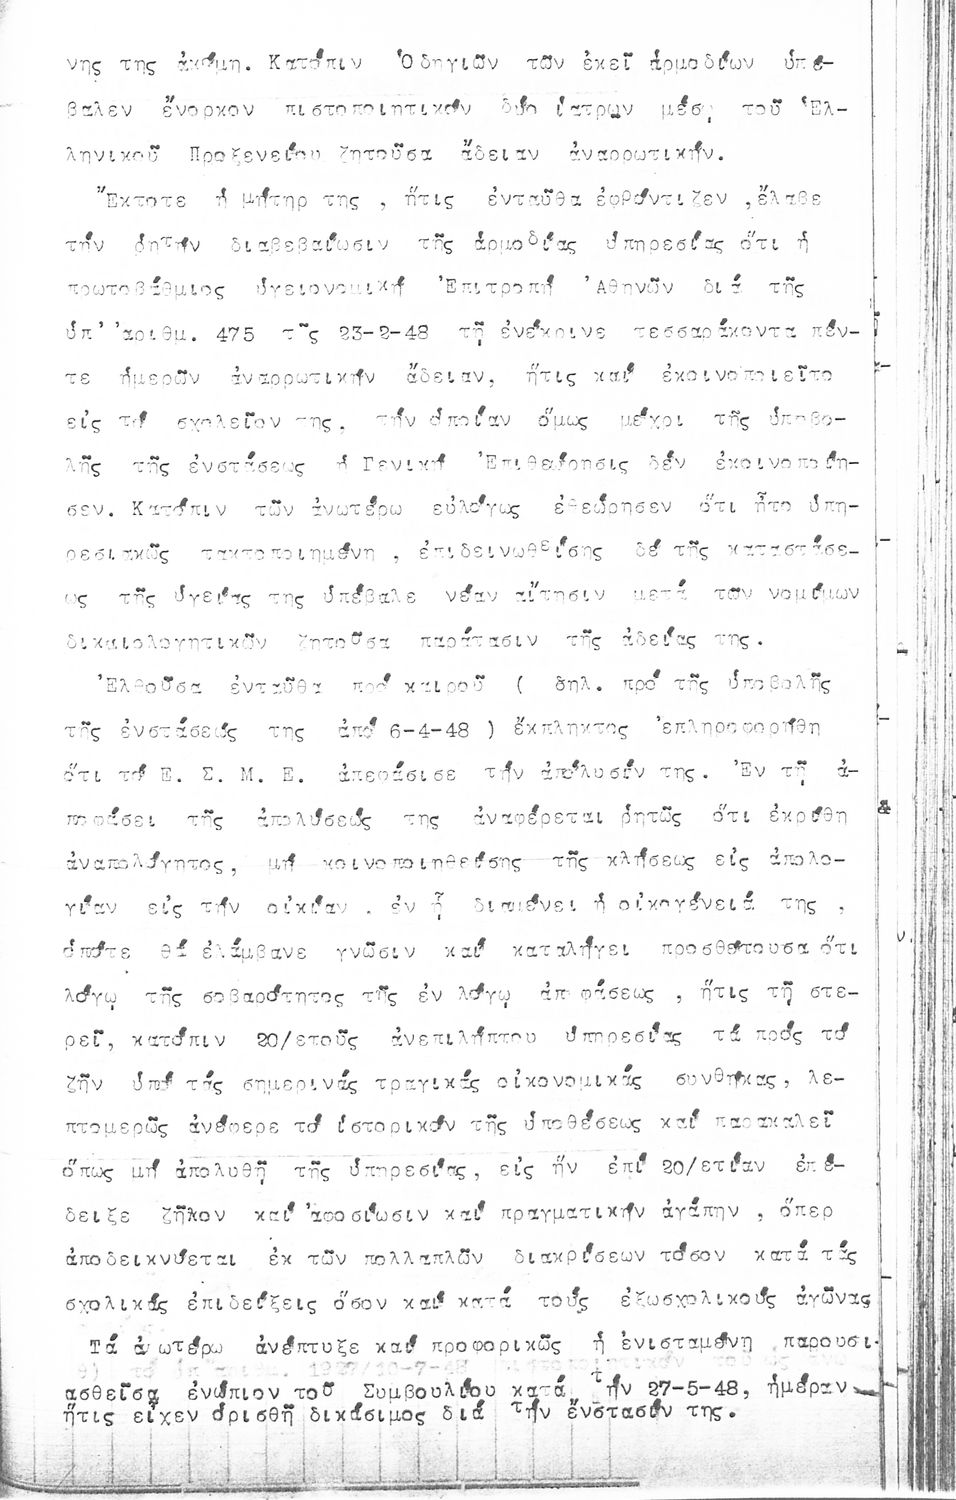 νης της ἀκόμη. Κατόπιν Ὁδηγιῶν τῶν ἐκεῖ ἁρμοδίων ὑπέ-
βαλεν ἔνορκον πιστοποιητικόν δύο ἰατρων μέσῳ τοῦ Ἑλ-
ληνικοῦ Προξενείου ζητοῦσα ἄδειαν ἀναρρωτικήν.
Ἔκτοτε ἡ μήτηρ της , ἥτις ἐνταῦθα ἐφρόντιζεν ,ἔλαβε
τήν ῥητήν διαβεβαίωσιν τῆς ἁρμοδίας ὑπηρεσίας ὅτι ἡ
πρωτοβάθμιος ὑγειονομική Ἐπιτροπή Ἀθηνῶν διά τῆς
ὑπ' ἀριθμ. 475 τῆς 23-2-48 τῇ ἐνέκρινε τεσσαράκοντα πέν-
τε ἡμερῶν ἀναρρωτικήν ἄδειαν, ἥτις καί ἐκοινοποιεῖτο
εἰς τό σχολεῖον της, τήν ὁποίαν ὅμως μέχρι τῆς ὑποβο-
λῆς τῆς ἐνστάσεως ἡ Γενική Ἐπιθεώρησις δέν ἐκοινοποίη-
σεν. Κατόπιν τῶν ἀνωτέρω εὐλόγως ἐθεώρησεν ὅτι ἦτο ὑπη-
ρεσιακῶς τακτοποιημένη , ἐπιδεινωθείσης δέ τῆς καταστάσε-
ως τῆς ὑγείας της ὑπέβαλε νέαν αἴτησιν μετά των νομίμων
δικαιολογητικῶν ζητοῦσα παράτασιν τῆς ἀδείας της.
Ἐλθοῦσα ἐνταῦθα πρό καιροῦ ( δηλ. πρό τῆς ὑποβολῆς
τῆς ἐνστάσεώς της ἀπό 6-4-48 ) ἔκπληκτος ἐπληροφορήθη
ὅτι τό Ε. Σ. Μ. Ε. ἀπεφάσισε τήν ἀπόλυσίν της. Ἐν τῇ ἀ-
ποφάσει τῆς ἀπολύσεώς της ἀναφέρεται ῥητῶς ὅτι ἐκρίθη
ἀναπολόγητος, μή κοινοποιηθείσης τῆς κλήσεως εἰς ἀπολο-
γίαν εἰς τήν οἰκίαν . ἐν ᾗ διαμένει ἡ οἰκογένειά της ,
ὁπότε θά ἐλάμβανε γνῶσιν καί καταλήγει προσθέτουσα ὅτι
λόγῳ τῆς σοβαρότητος τῆς ἐν λόγῳ ἀποφάσεως , ἥτις τῇ στε-
ρεῖ, κατόπιν 20/ετοῦς ἀνεπιλήπτου ὑπηρεσίας τά πρός τό
ζῆν ὑπό τάς σημερινάς τραγικάς οἰκονομικάς συνθήκας, λε-
πτομερῶς ἀνέφερε τό ἱστορικόν τῆς ὑποθέσεως καί παρακαλεῖ
ὅπως μή ἀπολυθῇ τῆς ὑπηρεσίας, εἰς ἥν ἐπί 20/ετίαν ἐπέ-
δειξε ζῆλον καί ἀφοσίωσιν καί πραγματικήν ἀγάπην , ὅπερ
ἀποδεικνύεται ἐκ τῶν πολλαπλῶν διακρίσεων τόσον κατά τάς
σχολικάς ἐπιδείξεις ὅσον καί κατά τούς ἐξωσχολικούς ἀγῶνας
Τά ἀνωτέρω ἀνέπτυξε καί προφορικῶς ἡ ἐνισταμένη παρουσι-
ασθεῖσα ἐνώπιον τοῦ Συμβουλίου κατά τήν 27-5-48, ἡμέραν
ἥτις εἶχεν ὁρισθῆ δικάσιμος διά τήν ἔνστασίν της.